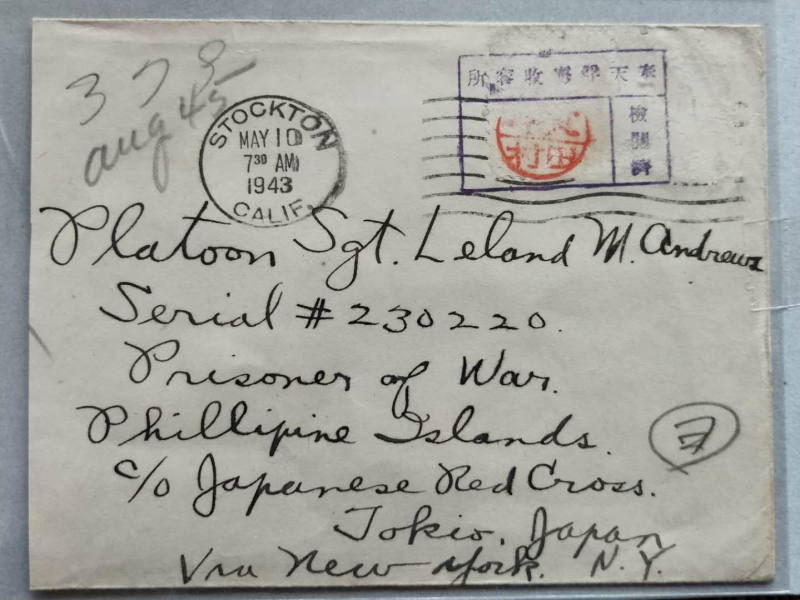 3 7 8
aug 45
STOCKTON
MAY 10
7 30 AM
1943
CALIF.
所容收虜俘天奉
檢閲濟
Platoon Sgt. Leland M. Andrews
Serial # 230220.
Prisoner of War.
Phillipine Islands.
c/o Japanese Red Cross.
Tokio, Japan
Via New York. N.Y.